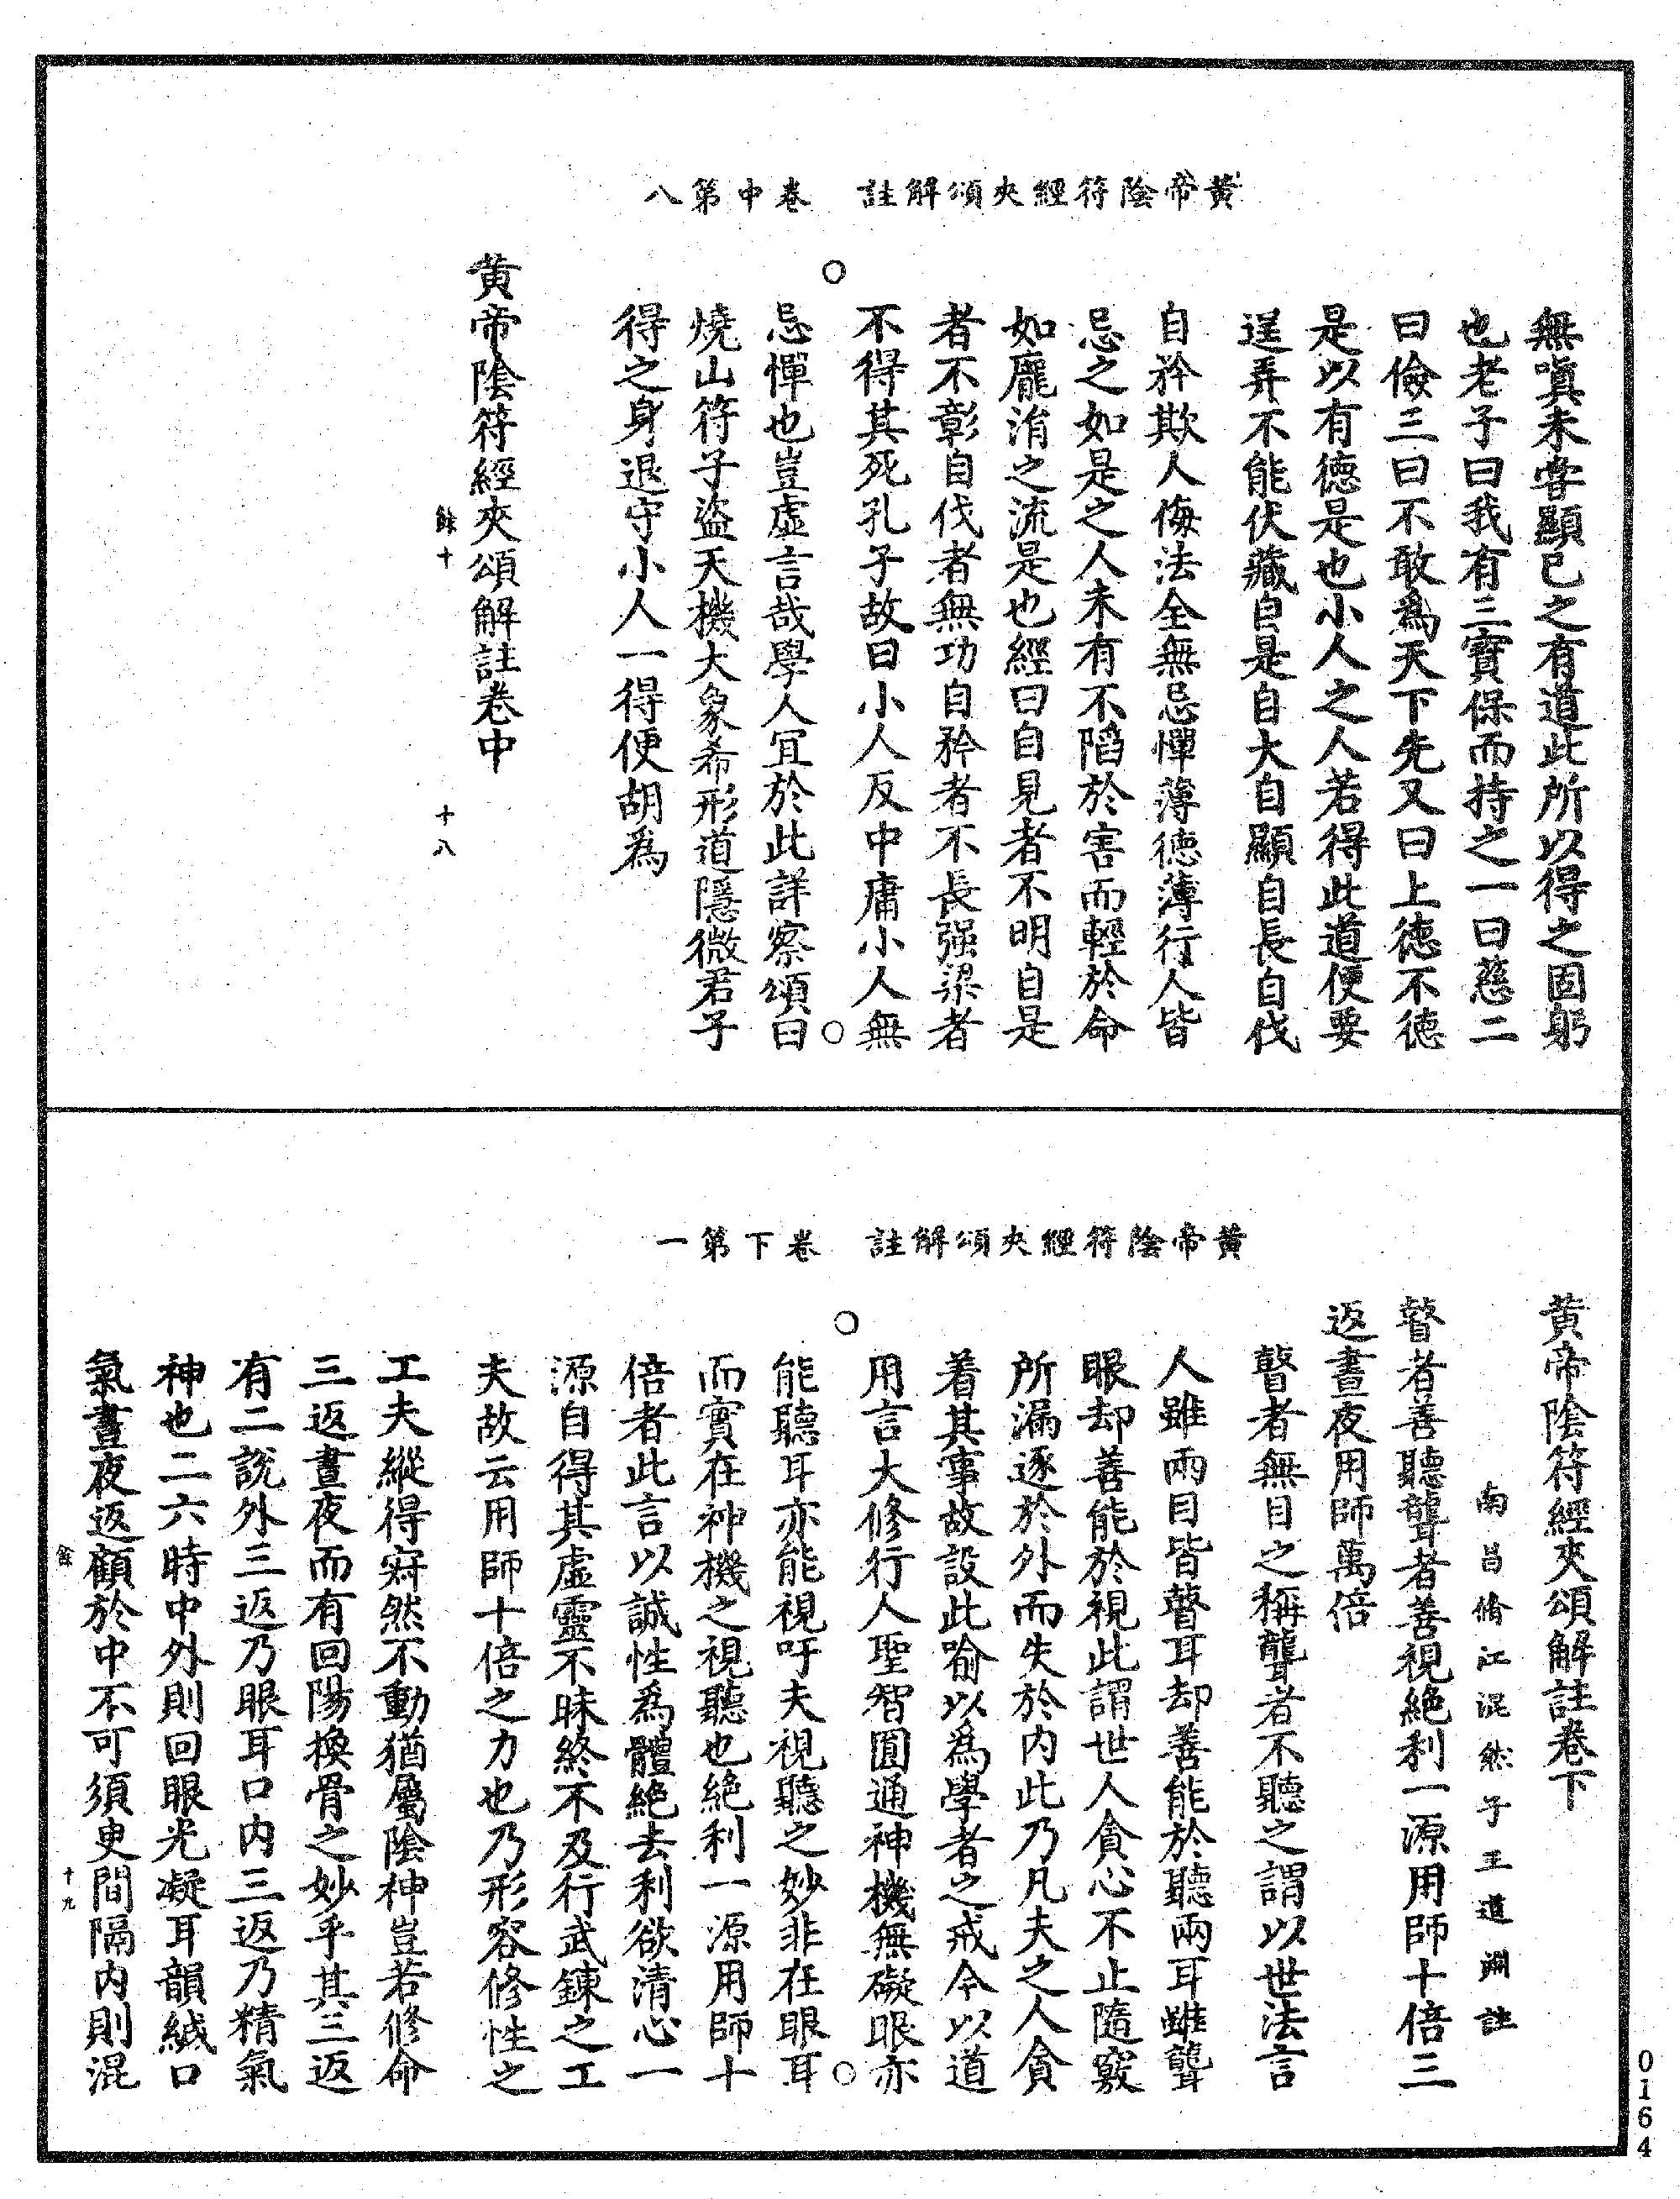 黃帝陰符經夾頌解註　卷中第八
無嗔未嘗顯已之有道此所以得之固躬
也老子曰我有三寶保而持之一曰慈二
曰儉三曰不敢為天下先又曰上德不德
是以有德是也小人之人若得此道便要
逞弄不能伏藏自是自大自顯自長自伐
自矜欺人侮法全無忌憚薄德薄行人皆
忌之如是之人未有不陷於害而輕於命
如龐涓之流是也經曰自見者不明自是
者不彰自伐者無功自矜者不長强梁者
不得其死孔子故曰小人反中庸小人無
忌憚也豈虛言哉學人宜於此詳察頌曰
燒山符子盜天機大象希形道隱微君子
得之身退守小人一得便胡為
黃帝陰符經夾頌解註卷中
餘十
十八
黃帝陰符經夾頌解註　卷下第一
黃帝陰符經夾頌解註卷下
南昌脩江混然子王道淵註
瞽者善聽聾者善視絕利一源用師十倍三
返晝夜用師萬倍
瞽者無目之稱聾者不聽之謂以世法言
人雖兩目皆瞽耳却善能於聽兩耳雖聾
眼却善能於視此謂世人貪心不止隨竅
所漏逐於外而失於內此乃凡夫之人貪
着其事故設此喻以為學者之戒今以道
用言大修行人聖智圓通神機無礙眼亦
能聽耳亦能視吁夫視聽之妙非在眼耳
而實在神機之視聽也絕利一源用師十
倍者此言以誠性為體絕去利欲清心一
源自得其虛靈不昧終不及行武鍊之工
夫故云用師十倍之力也乃形容修性之
工夫縱得寂然不動猶屬陰神豈若修命
三返晝夜而有回陽換骨之妙乎其三返
有二說外三返乃眼耳口內三返乃精氣
神也二六時中外則回眼光凝耳韻緘口
氣晝夜返顧於中不可須臾間隔內則混
餘
十九
0164